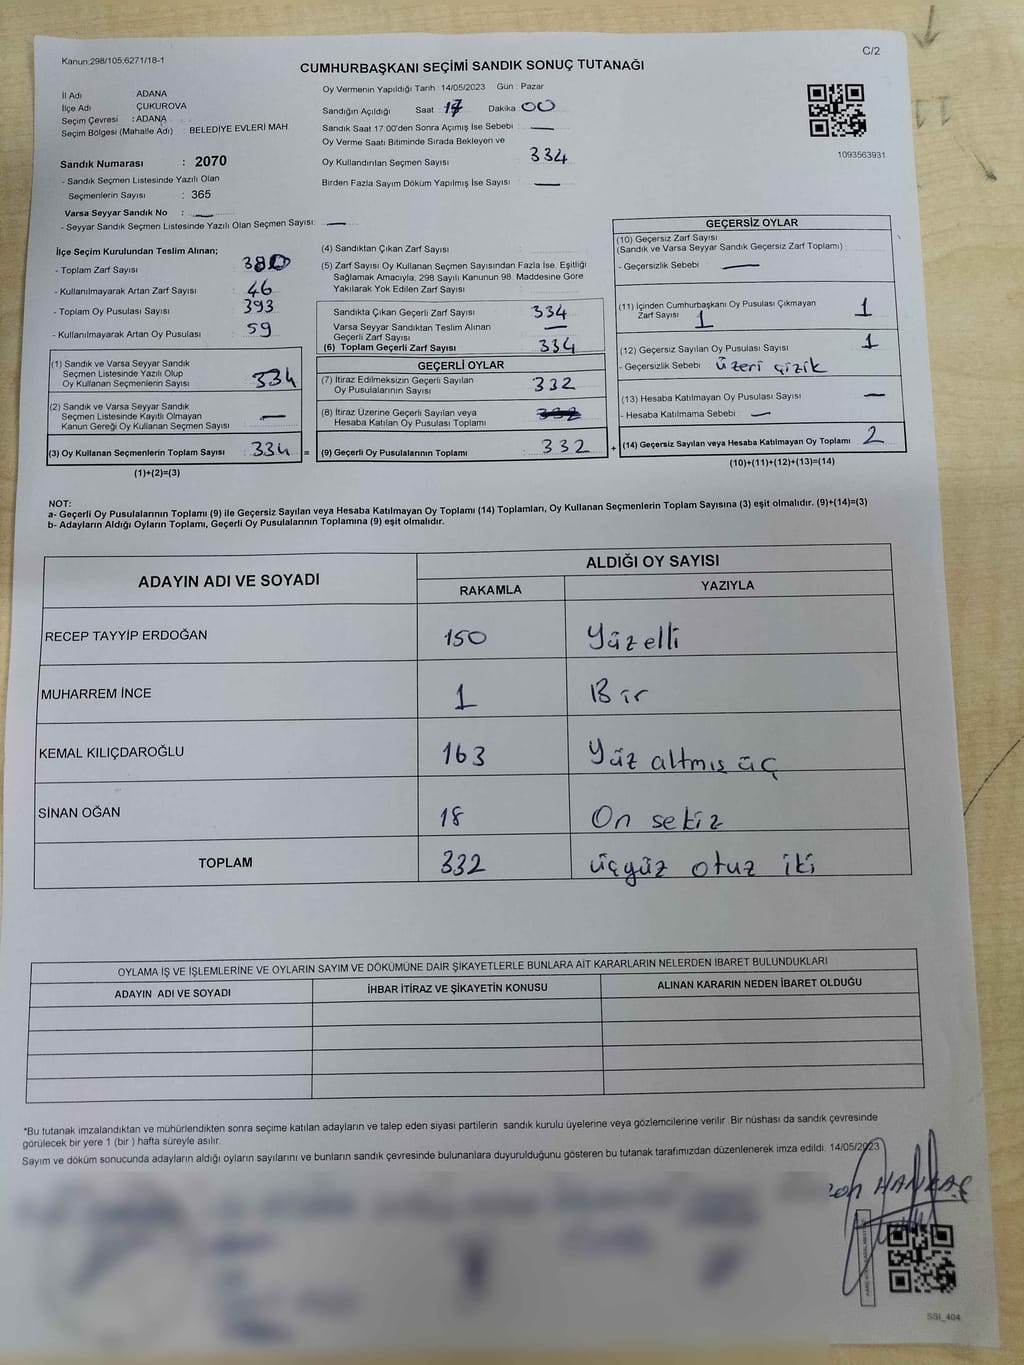 Kanun:298/105;6271/18-1
C/2
CUMHURBAŞKANI SEÇİMİ SANDIK SONUÇ TUTANAĞI
İl Adı ADANA
İlçe Adı ÇUKUROVA
Seçim Çevresi : ADANA
Seçim Bölgesi (Mahalle Adı) : BELEDİYE EVLERİ MAH
Oy Vermenin Yapıldığı Tarih 14/05/2023 Gün Pazar
Sandığın Açıldığı Saat 17 Dakika 00
Sandık Saat 17:00'den Sonra Açılmış İse Sebebi : —
Oy Verme Saati Bitiminde Sırada Bekleyen ve
Oy Kullandırılan Seçmen Sayısı 334
Birden Fazla Sayım Döküm Yapılmış İse Sayısı : —
1093563931
Sandık Numarası : 2070
- Sandık Seçmen Listesinde Yazılı Olan
Seçmenlerin Sayısı : 365
Varsa Seyyar Sandık No : —
- Seyyar Sandık Seçmen Listesinde Yazılı Olan Seçmen Sayısı: —
İlçe Seçim Kurulundan Teslim Alınan;
- Toplam Zarf Sayısı : 380
- Kullanılmayarak Artan Zarf Sayısı : 46
- Toplam Oy Pusulası Sayısı : 393
- Kullanılmayarak Artan Oy Pusulası : 59
(1) Sandık ve Varsa Seyyar Sandık
Seçmen Listesinde Yazılı Olup
Oy Kullanan Seçmenlerin Sayısı : 334
(2) Sandık ve Varsa Seyyar Sandık
Seçmen Listesinde Kayıtlı Olmayan
Kanun Gereği Oy Kullanan Seçmen Sayısı : —
(3) Oy Kullanan Seçmenlerin Toplam Sayısı : 334 =
(1)+(2)=(3)
(4) Sandıktan Çıkan Zarf Sayısı :
(5) Zarf Sayısı Oy Kullanan Seçmen Sayısından Fazla İse, Eşitliği
Sağlamak Amacıyla, 298 Sayılı Kanunun 98. Maddesine Göre
Yakılarak Yok Edilen Zarf Sayısı :
Sandıkta Çıkan Geçerli Zarf Sayısı : 334
Varsa Seyyar Sandıktan Teslim Alınan
Geçerli Zarf Sayısı : —
(6) Toplam Geçerli Zarf Sayısı : 334
GEÇERLİ OYLAR
(7) İtiraz Edilmeksizin Geçerli Sayılan
Oy Pusulalarının Sayısı : 332
(8) İtiraz Üzerine Geçerli Sayılan veya
Hesaba Katılan Oy Pusulası Toplamı : 332
(9) Geçerli Oy Pusulalarının Toplamı : 332 +
GEÇERSİZ OYLAR
(10) Geçersiz Zarf Sayısı
(Sandık ve Varsa Seyyar Sandık Geçersiz Zarf Toplamı) :
- Geçersizlik Sebebi : —
(11) İçinden Cumhurbaşkanı Oy Pusulası Çıkmayan
Zarf Sayısı 1 1
(12) Geçersiz Sayılan Oy Pusulası Sayısı : 1
- Geçersizlik Sebebi : üzeri çizik
(13) Hesaba Katılmayan Oy Pusulası Sayısı : —
- Hesaba Katılmama Sebebi : —
(14) Geçersiz Sayılan veya Hesaba Katılmayan Oy Toplamı : 2
(10)+(11)+(12)+(13)=(14)
NOT:
a- Geçerli Oy Pusulalarının Toplamı (9) ile Geçersiz Sayılan veya Hesaba Katılmayan Oy Toplamı (14) Toplamları, Oy Kullanan Seçmenlerin Toplam Sayısına (3) eşit olmalıdır. (9)+(14)=(3)
b- Adayların Aldığı Oyların Toplamı, Geçerli Oy Pusulalarının Toplamına (9) eşit olmalıdır.
ADAYIN ADI VE SOYADI ALDIĞI OY SAYISI
RAKAMLA YAZIYLA
RECEP TAYYİP ERDOĞAN 150 Yüz elli
MUHARREM İNCE 1 Bir
KEMAL KILIÇDAROĞLU 163 Yüz altmış üç
SİNAN OĞAN 18 On sekiz
TOPLAM 332 üçyüz otuz iki
OYLAMA İŞ VE İŞLEMLERİNE VE OYLARIN SAYIM VE DÖKÜMÜNE DAİR ŞİKAYETLERLE BUNLARA AİT KARARLARIN NELERDEN İBARET BULUNDUKLARI
ADAYIN ADI VE SOYADI İHBAR İTİRAZ VE ŞİKAYETİN KONUSU ALINAN KARARIN NEDEN İBARET OLDUĞU
*Bu tutanak imzalandıktan ve mühürlendikten sonra seçime katılan adayların ve talep eden siyasi partilerin sandık kurulu üyelerine veya gözlemcilerine verilir. Bir nüshası da sandık çevresinde
görülecek bir yere 1 (bir ) hafta süreyle asılır.
Sayım ve döküm sonucunda adayların aldığı oyların sayılarını ve bunların sandık çevresinde bulunanlara duyurulduğunu gösteren bu tutanak tarafımızdan düzenlenerek imza edildi. 14/05/2023
SSI_404